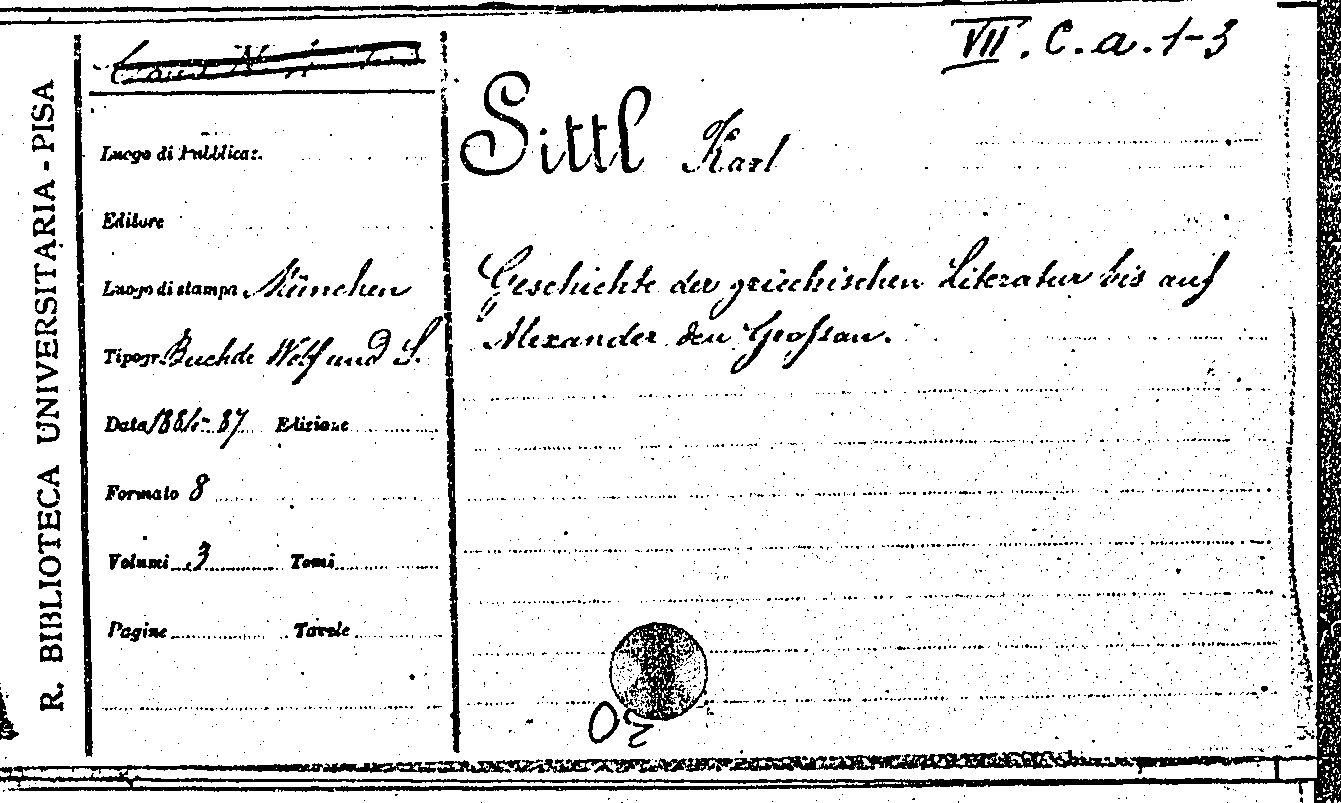 VII. C. a. 1-3
R. BIBLIOTECA UNIVERSITARIA - PISA
Luogo di Pubblicaz.
Editore
Luogo di stampa München
Tipogr. Buchdr Wolf und S.
Data 1884-87 Edizione
Formato 8
Volumi 3 Tomi
Pagine Tavole
Sittl Karl
Geschichte der griechischen Literatur bis auf
Alexander den Grossan.